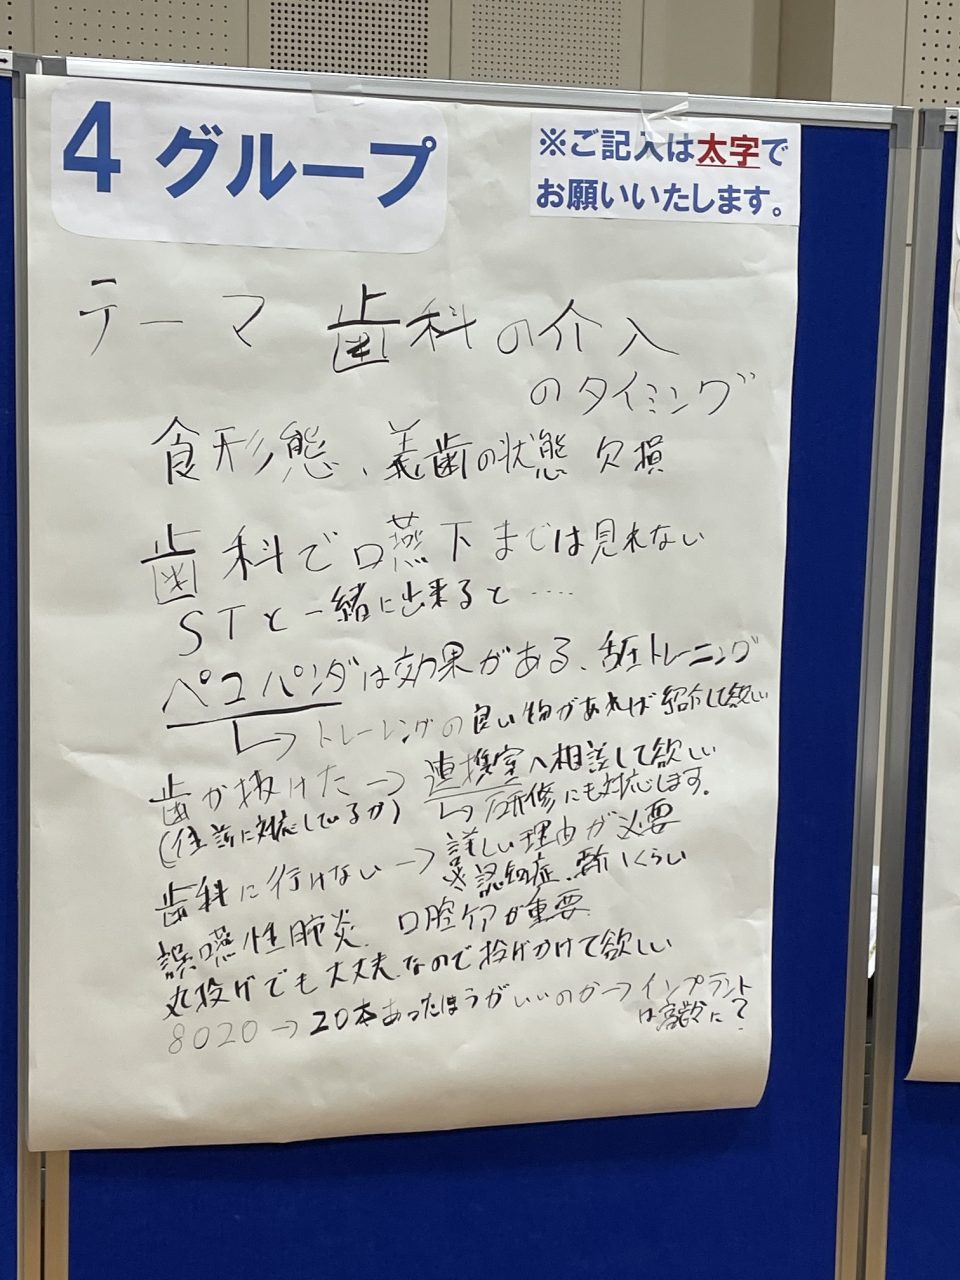 4 グループ
※ご記入は太字で
お願いいたします。
テーマ 歯科の介入
のタイミング
食形態、義歯の状態 欠損
歯科で嚥下までは見れない
STと一緒に出来ると‥‥
ペコパンダは効果がある、舌圧トレーニング
↳トレーニングの良い物があれば紹介して欲しい
歯が抜けた→連携室へ相談して欲しい
(往診に対応しているか) ↳研修にも対応します。
歯科に行けない→詳しい理由が必要
※認知症、難しくらい
誤嚥性肺炎、口腔ケアが重要
丸投げでも大丈夫、なので投げかけて欲しい
8020→20本あったほうがいいのか→インプラント
は高齢に?